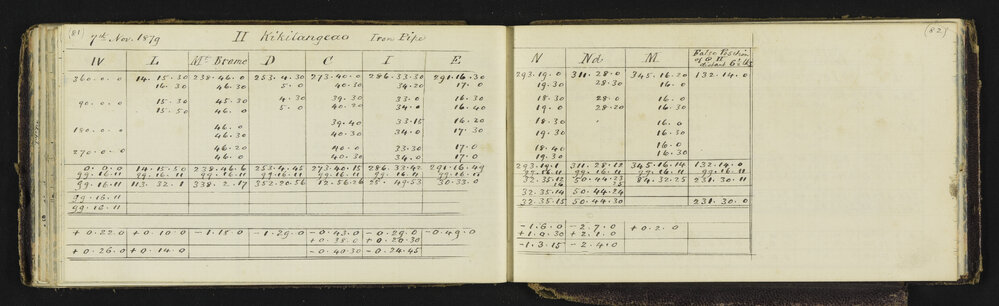 (81) 7th Nov. 1879 II Kikitangeao Iron Pipe
W L Mt Brame D C I E
360.0.0 14.15.30 238.46.0 253.4.30 273.40.0 286.33.30 291.16.30
16.30 46.30 5.0 40.30 34.20 17.0
90.0.0 15.30 45.30 4.30 39.30 33.0 16.30
15.50 46.0 5.0 40.20 34.0 16.40
46.0 39.40 33.15 16.20
180.0.0 46.30 40.30 34.0 17.30
46.20 40.0 33.30 17.0
270.0.0 46.0 40.30 34.0 17.0
0.0.0 14.15.50 238.46.6 253.4.45 273.40.15 286.33.42 291.16.49
99.16.11 99.16.11 99.16.11 99.16.11 99.16.11 99.16.11 99.16.11
99.16.11 113.32.1 338.2.17 352.20.56 12.56.26 25.49.53 30.33.0
99.16.11
99.16.11
+0.22.0 +0.10.0 -1.18.0 -1.29.0 -0.43.0 -0.29.0 -0.49.0
+0.38.0 +0.20.30
+0.26.0 +0.14.0 -0.40.30 -0.24.45
(82)
N Nd M False Position of @ II distant 6½ lks
293.19.0 311.28.0 345.16.20 132.14.0
19.30 28.30 16.0
18.30 28.0 16.0
19.0 28.30 16.30
18.30 16.0
19.30 16.30
18.40 16.0
19.30 16.30
293.19.1 311.28.12 345.16.14 132.14.0
99.16.11 99.16.11 99.16.11 99.16.11
32.35.12 50.44.23 84.32.25 231.30.11
16 25
32.35.14 50.44.24
32.35.15 50.44.30 231.30.0
-1.6.0 -2.7.0 +0.2.0
+1.0.30 +2.1.0
-1.3.15 -2.4.0